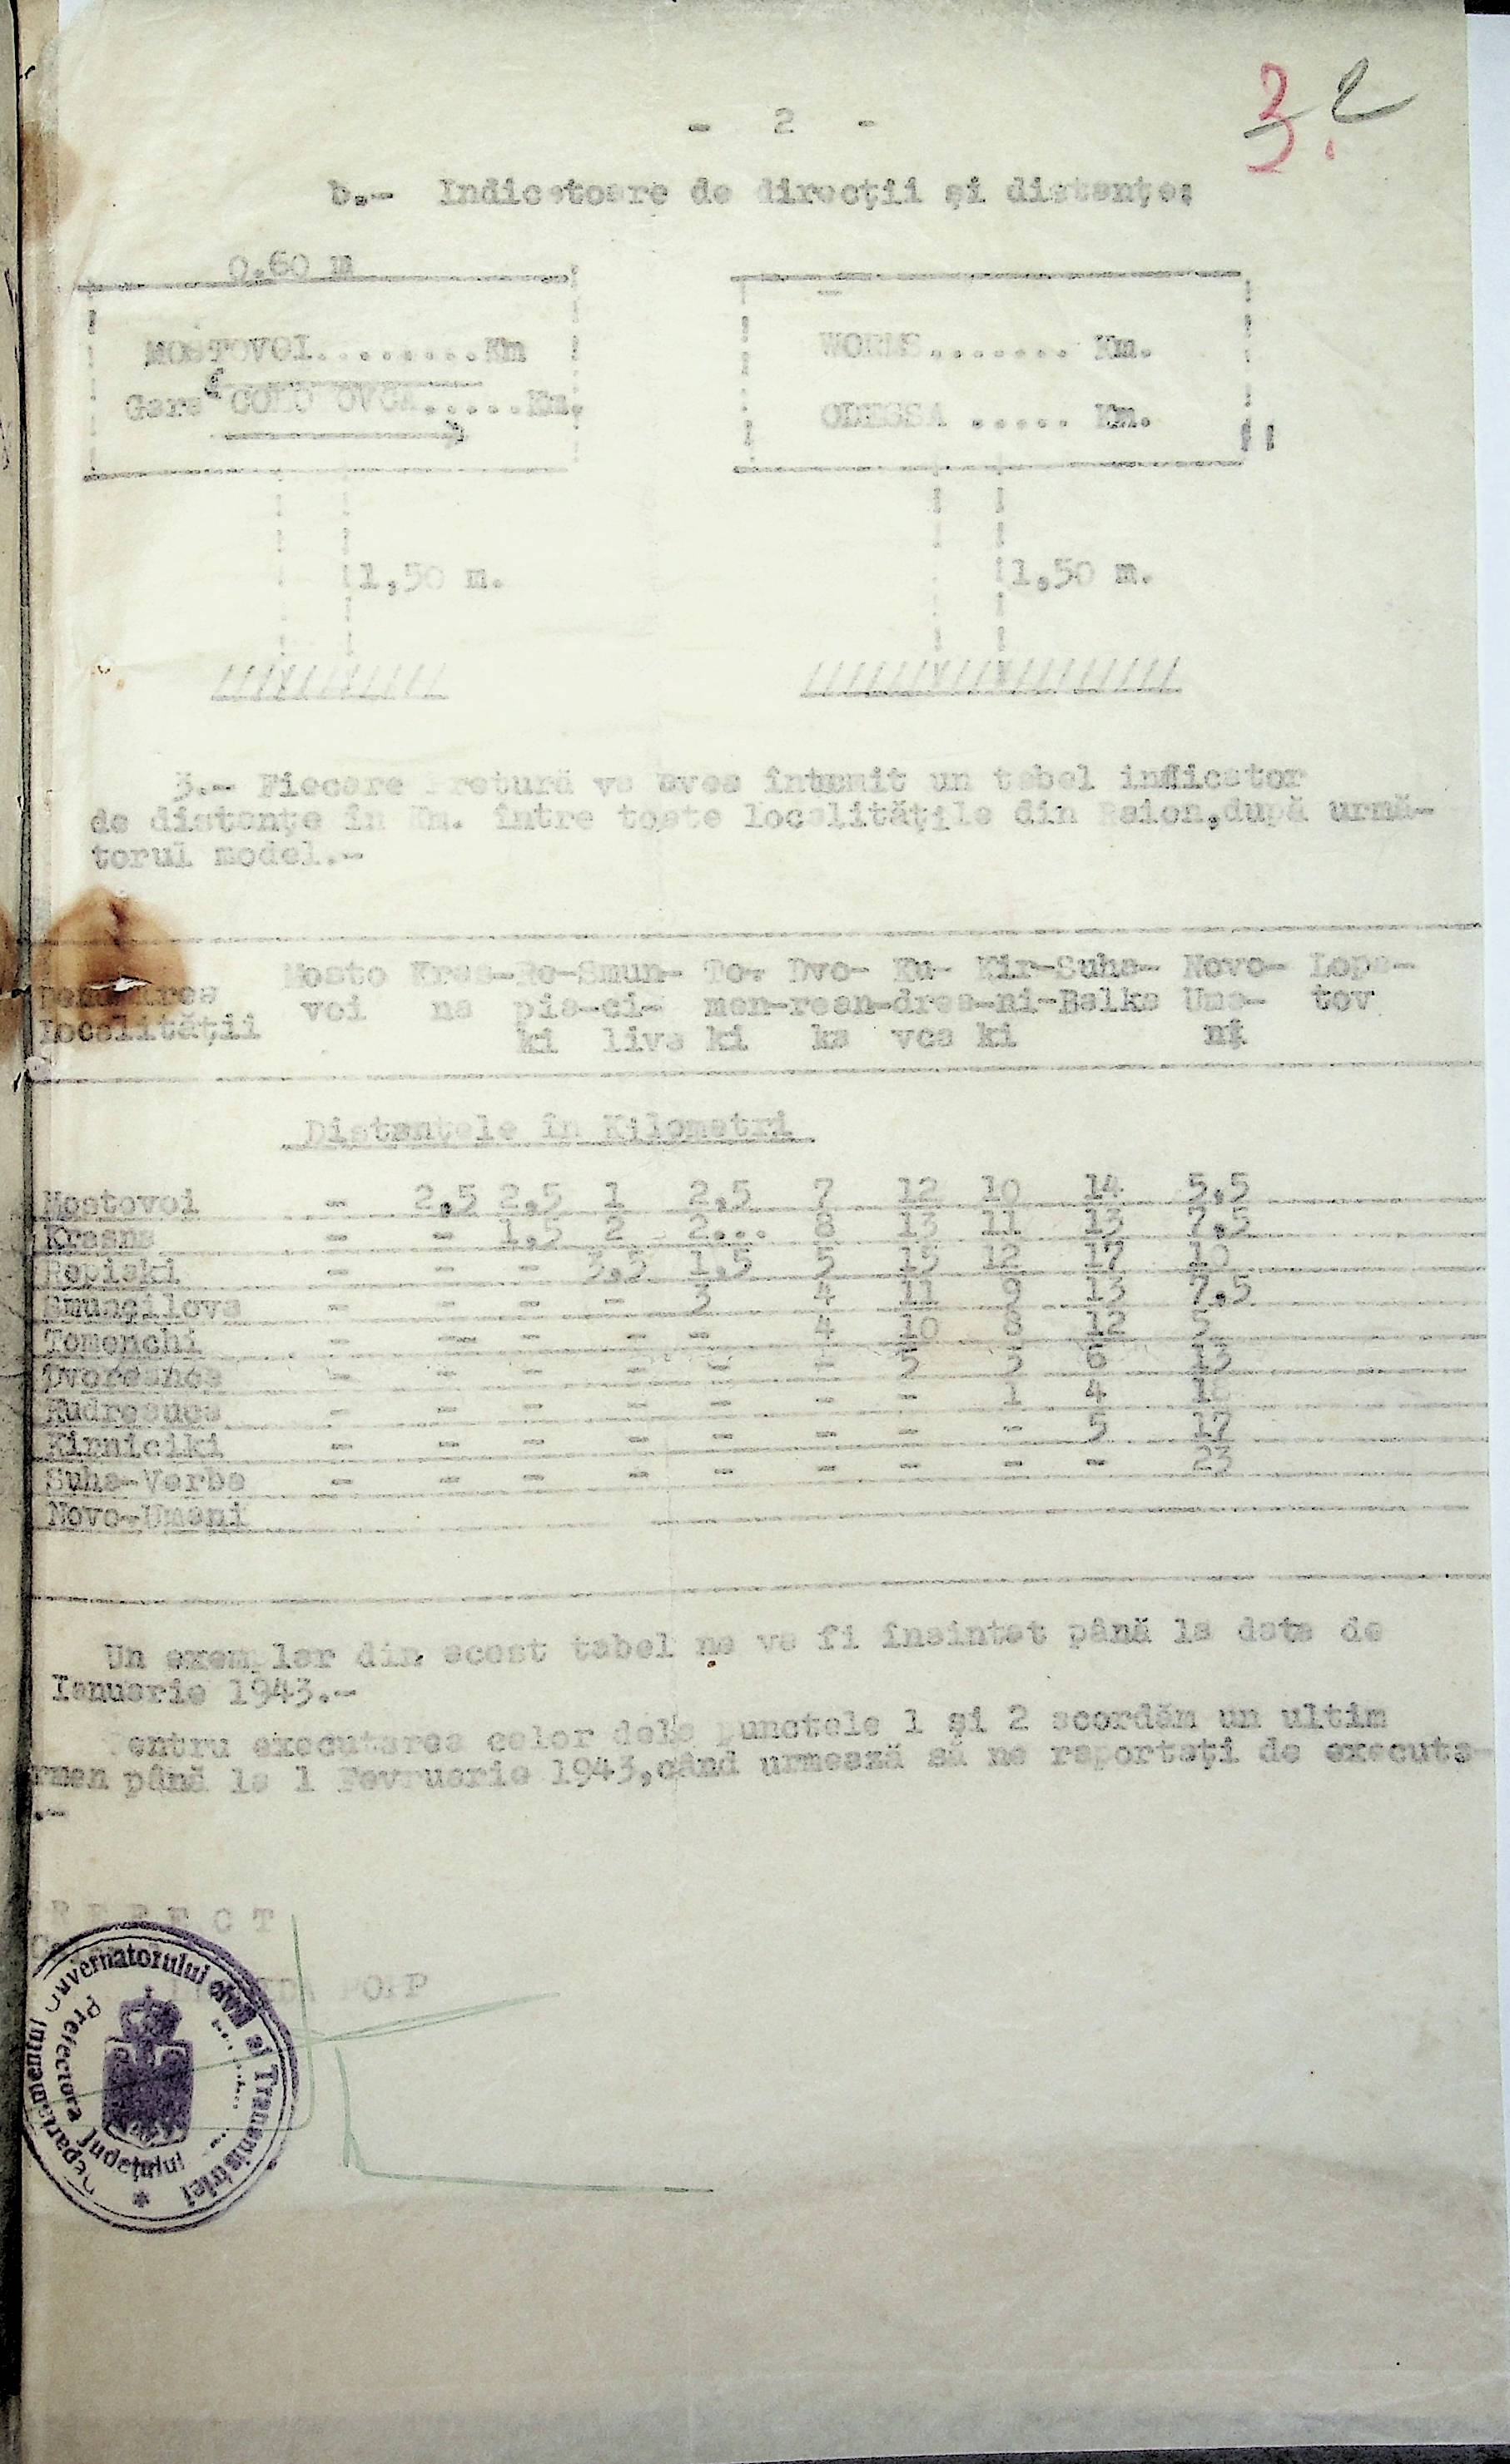 3. 2
- 2 -
b.- Indicatoare de direcţii şi distanţe:
0.60 m
MOSTOVOI.........Km
WORMS....... Km.
Gara COLO OVCA.....Km.
ODESSA ..... Km.
1,50 m.
1,50 m.
3.- Fiecare retură va avea întocmit un tabel indicator
de distanţe în Km. între toate localităţile din Raion,după urmă-
torul model.-
Mosto Kras- Re- Smun- To- Dvo- Ku- Kir- Suha- Novo- Lopa-
voi na pia- ci- men- rean- drea- ni- Balka Uma- tov
Localităţii
ki liva ki ka vca ki nţ
Distanţele în Kilometri
Mostovoi - 2,5 2,5 1 2,5 7 12 10 14 5,5
Krasna - - 1,5 2 2... 8 13 11 13 7,5
Repiski - - - 3,5 1,5 5 15 12 17 10
Smuncilova - - - - 3 4 11 9 13 7,5
Tomenchi - - - - - 4 10 8 12 5
Dvoreanca - - - - - - 5 3 6 13
Kudreanca - - - - - - - 1 4 18
Kirniciki - - - - - - - - 5 17
Suha-Verba - - - - - - - - - 23
Novo-Umani
Un exemplar din acest tabel ne va fi înaintat până la data de
Ianuarie 1943.-
entru executarea celor dela punctele 1 şi 2 acordăm un ultim
rmen până la 1 Fevruarie 1943,când urmează să ne raportaţi de executa-
.-
P R E F E C T
PO.P
Departamentul Guvernatorului civil al Transnistriei
Prefectura Judeţului